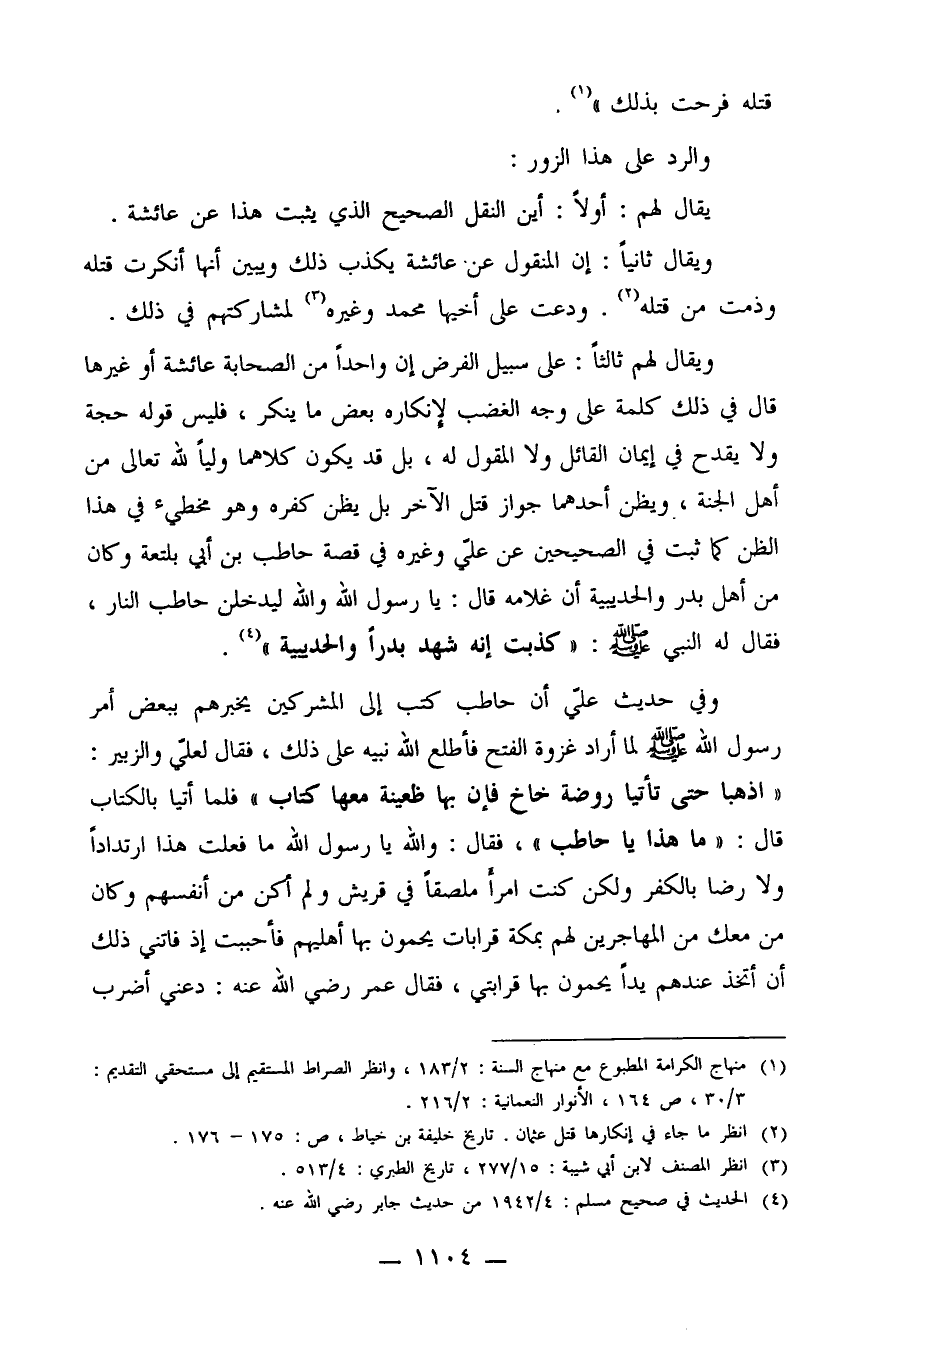 قتله فرحت بذلك »(١) .
والرد على هذا الزور :
يقال لهم : أولاً : أين النقل الصحيح الذي يثبت هذا عن عائشة .
ويقال ثانياً : إن المنقول عن عائشة يكذب ذلك ويبين أنها أنكرت قتله
وذمت من قتله(٢) . ودعت على أخيها محمد وغيره(٣) لمشاركتهم في ذلك .
ويقال لهم ثالثاً : على سبيل الفرض إن واحداً من الصحابة عائشة أو غيرها
قال في ذلك كلمة على وجه الغضب لإنكاره بعض ما ينكر ، فليس قوله حجة
ولا يقدح في إيمان القائل ولا المقول له ، بل قد يكون كلاهما ولياً لله تعالى من
أهل الجنة ، ويظن أحدهما جواز قتل الآخر بل يظن كفره وهو مخطيء في هذا
الظن كما ثبت في الصحيحين عن عليّ وغيره في قصة حاطب بن أبي بلتعة وكان
من أهل بدر والحديبية أن غلامه قال : يا رسول الله والله ليدخلن حاطب النار ،
فقال له النبي ﷺ : « كذبت إنه شهد بدراً والحديبية »(٤) .
وفي حديث عليّ أن حاطب كتب إلى المشركين يخبرهم ببعض أمر
رسول الله ﷺ لما أراد غزوة الفتح فأطلع الله نبيه على ذلك ، فقال لعليّ والزبير :
« اذهبا حتى تأتيا روضة خاخ فإن بها ظعينة معها كتاب » فلما أتيا بالكتاب
قال : « ما هذا يا حاطب » ، فقال : والله يا رسول الله ما فعلت هذا ارتداداً
ولا رضا بالكفر ولكن كنت امرأً ملصقاً في قريش ولم أكن من أنفسهم وكان
من معك من المهاجرين لهم بمكة قرابات يحمون بها أهليهم فأحببت إذ فاتني ذلك
أن أتخذ عندهم يداً يحمون بها قرابتي ، فقال عمر رضي الله عنه : دعني أضرب
(١) منهاج الكرامة المطبوع مع منهاج السنة : ١٨٣/٢ ، وانظر الصراط المستقيم إلى مستحقي التقديم :
٣٠/٣ ، ص ١٦٤ ، الأنوار النعمانية : ٢١٦/٢ .
(٢) انظر ما جاء في إنكارها قتل عثمان . تاريخ خليفة بن خياط ، ص : ١٧٥ – ١٧٦ .
(٣) انظر المصنف لابن أبي شيبة : ٢٧٧/١٥ ، تاريخ الطبري : ٥١٣/٤ .
(٤) الحديث في صحيح مسلم : ١٩٤٢/٤ من حديث جابر رضي الله عنه .
— ١١٠٤ —